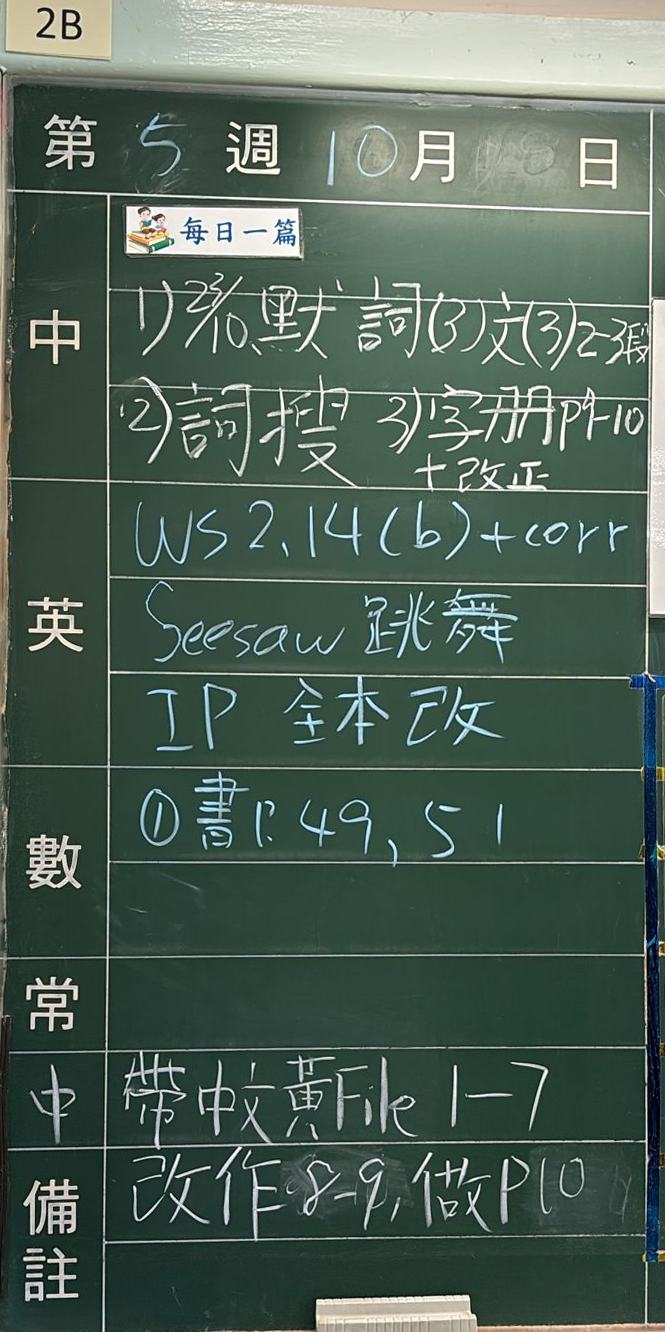 2B
第 5 週 10 月 日
每日一篇
中
1) 23/10 默 詞(3)文(3)2-3段
2)詞搜 3)字册P9-10
+改正
英
WS 2.14(b)+corr
Seesaw 跳舞
IP 全本改
數
①書P.49, 51
常
中
帶中文黃File 1-7
備註
改作8-9,做P10